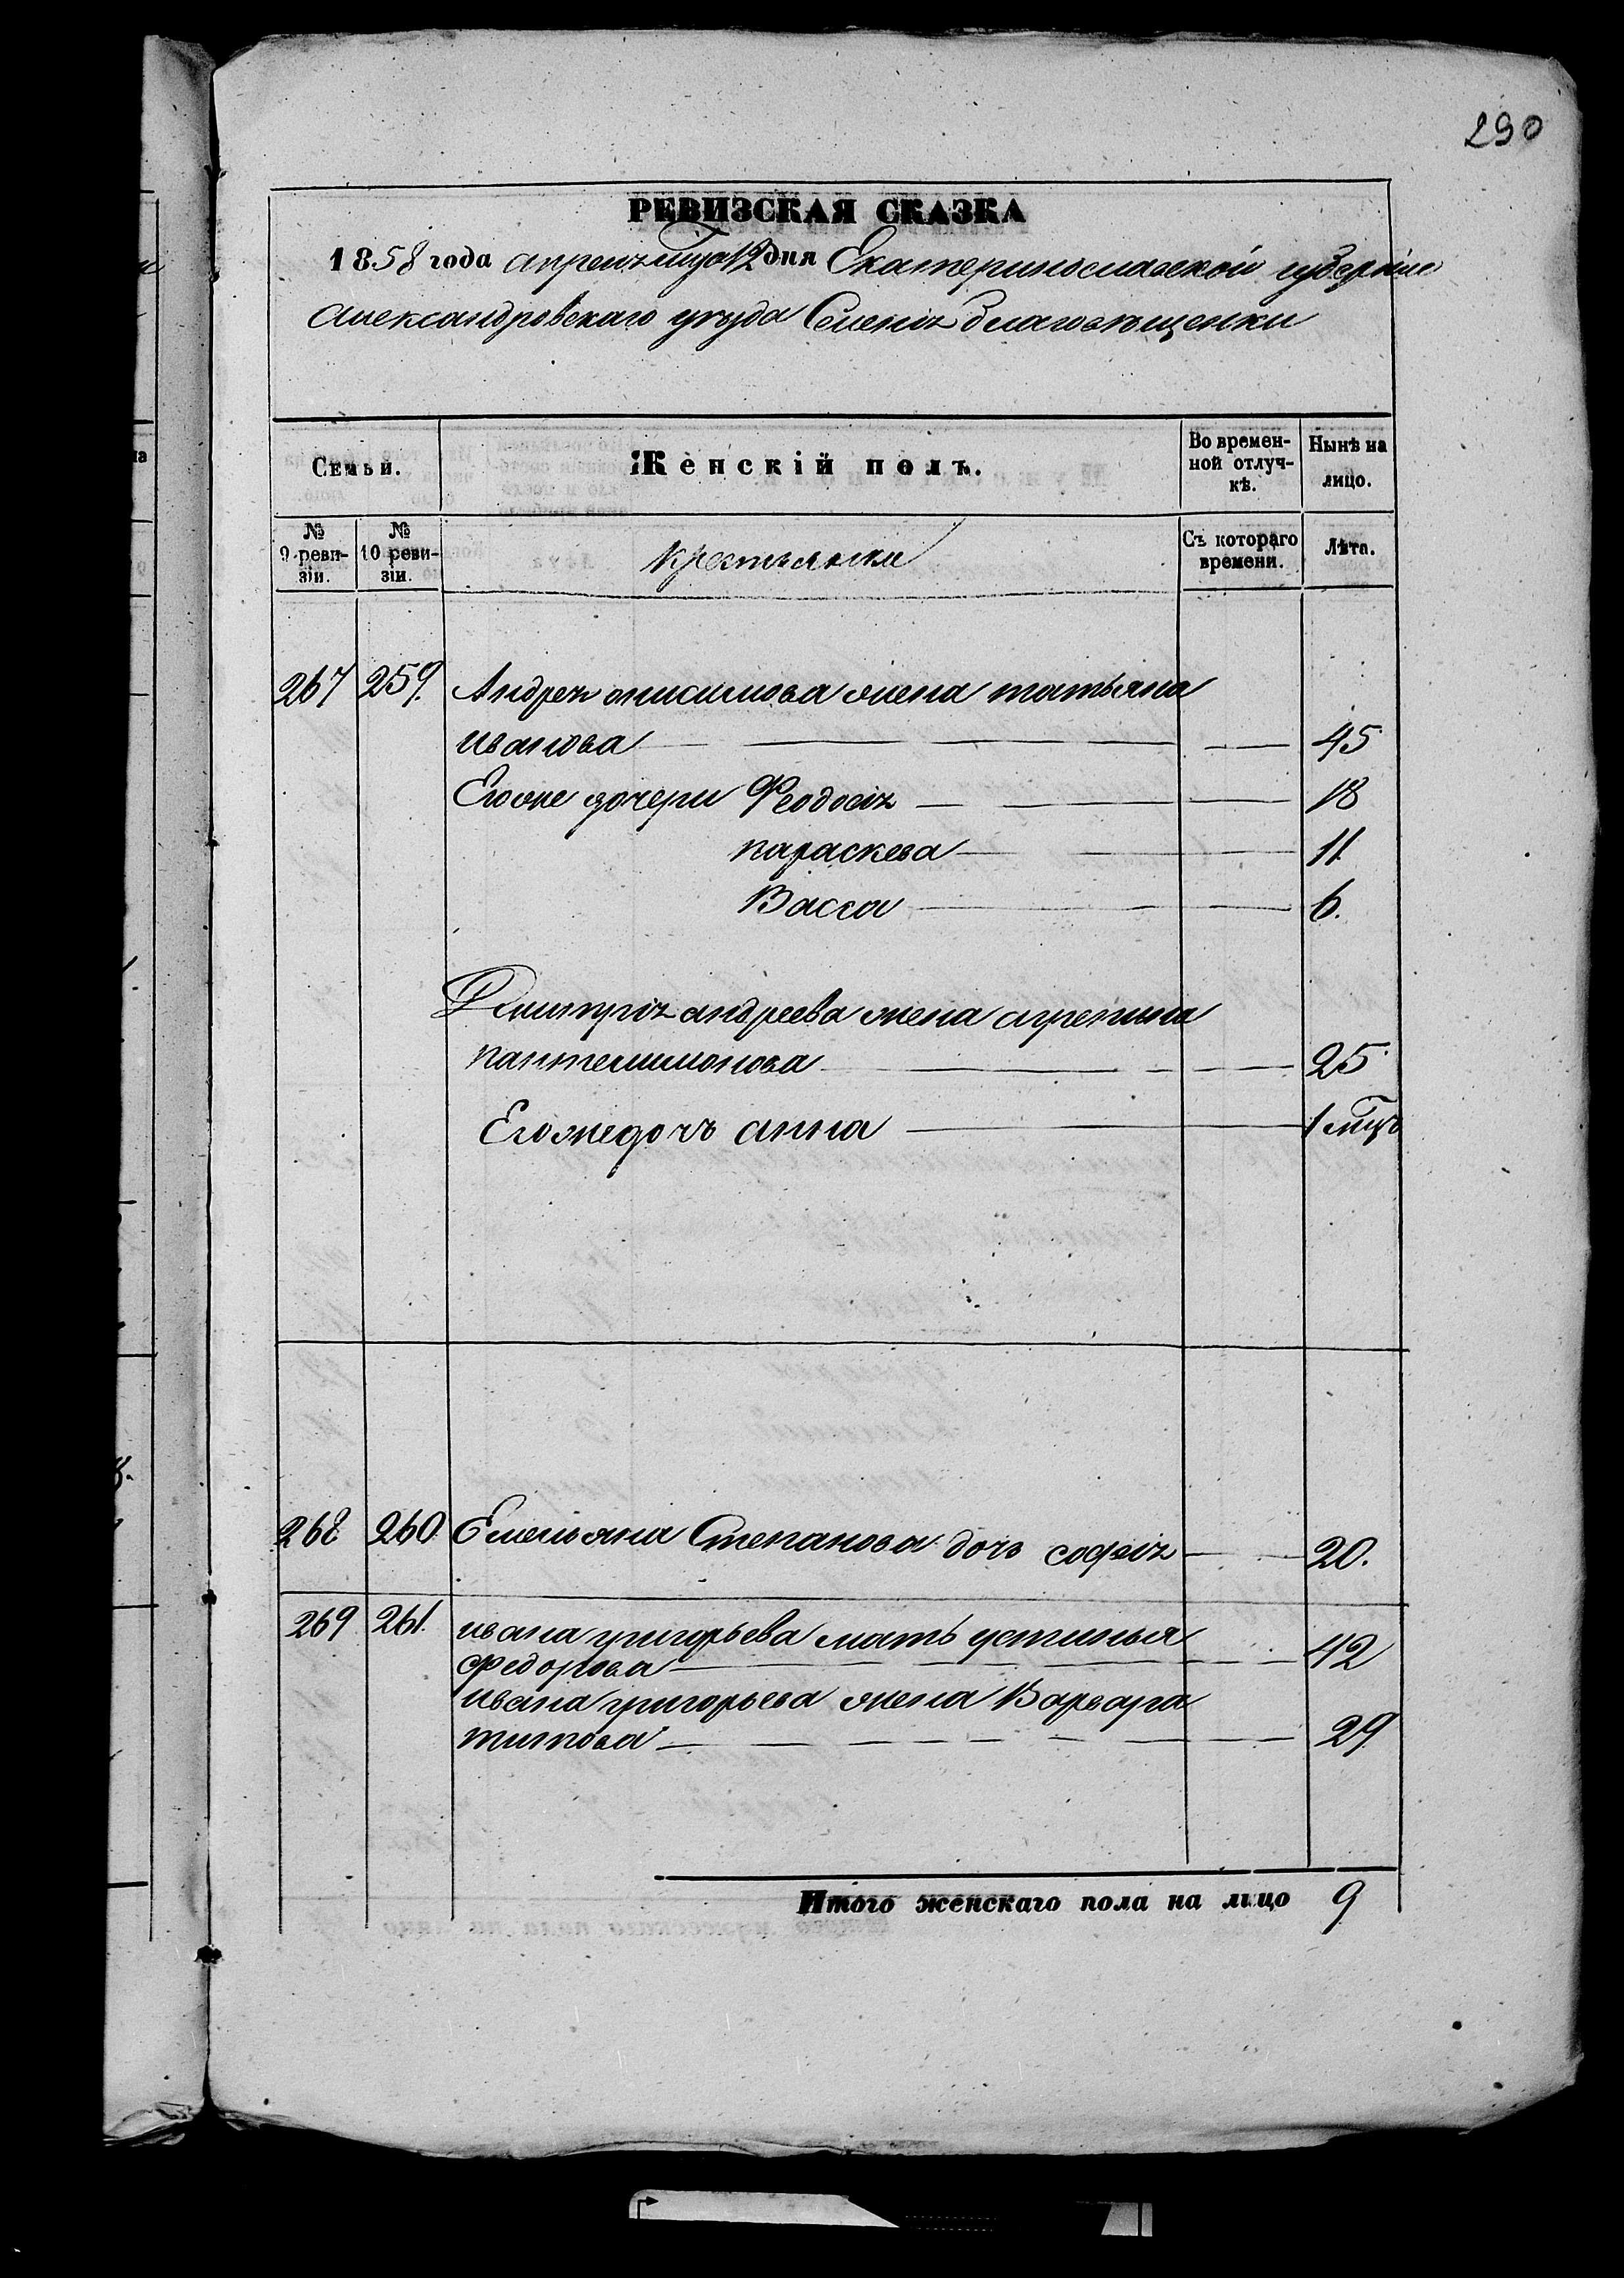 290
РЕВИЗСКАЯ СКАЗКА
1858 года апреля мца 12 дня Екатеринославской губернии
Александровскаго уезда Селенія благовещенки
Семьи.
Женскій полъ.
Во времен-
ной отлуч-
кѣ.
Нынѣ на
лицо.
№
9 реви-
зіи.
№
10 реви-
зіи.
крестьянки
Съ котораго
времени.
Лѣта.
267 259. Андрея онисимова жена татьяна
иванова 45
Егоже дочери Феодосія 18
параскева 11
Васса 6.
Димитрія андреева жена агрепина
пантелимонова 25
Егоже дочъ анна 1 мцъ
268 260 Емельяна Степанова дочъ софія 20.
269 261. ивана григорьева мать устинья
федорова 42
ивана григорьева жена Варвара
титова 29
Итого женскаго пола на лицо 9